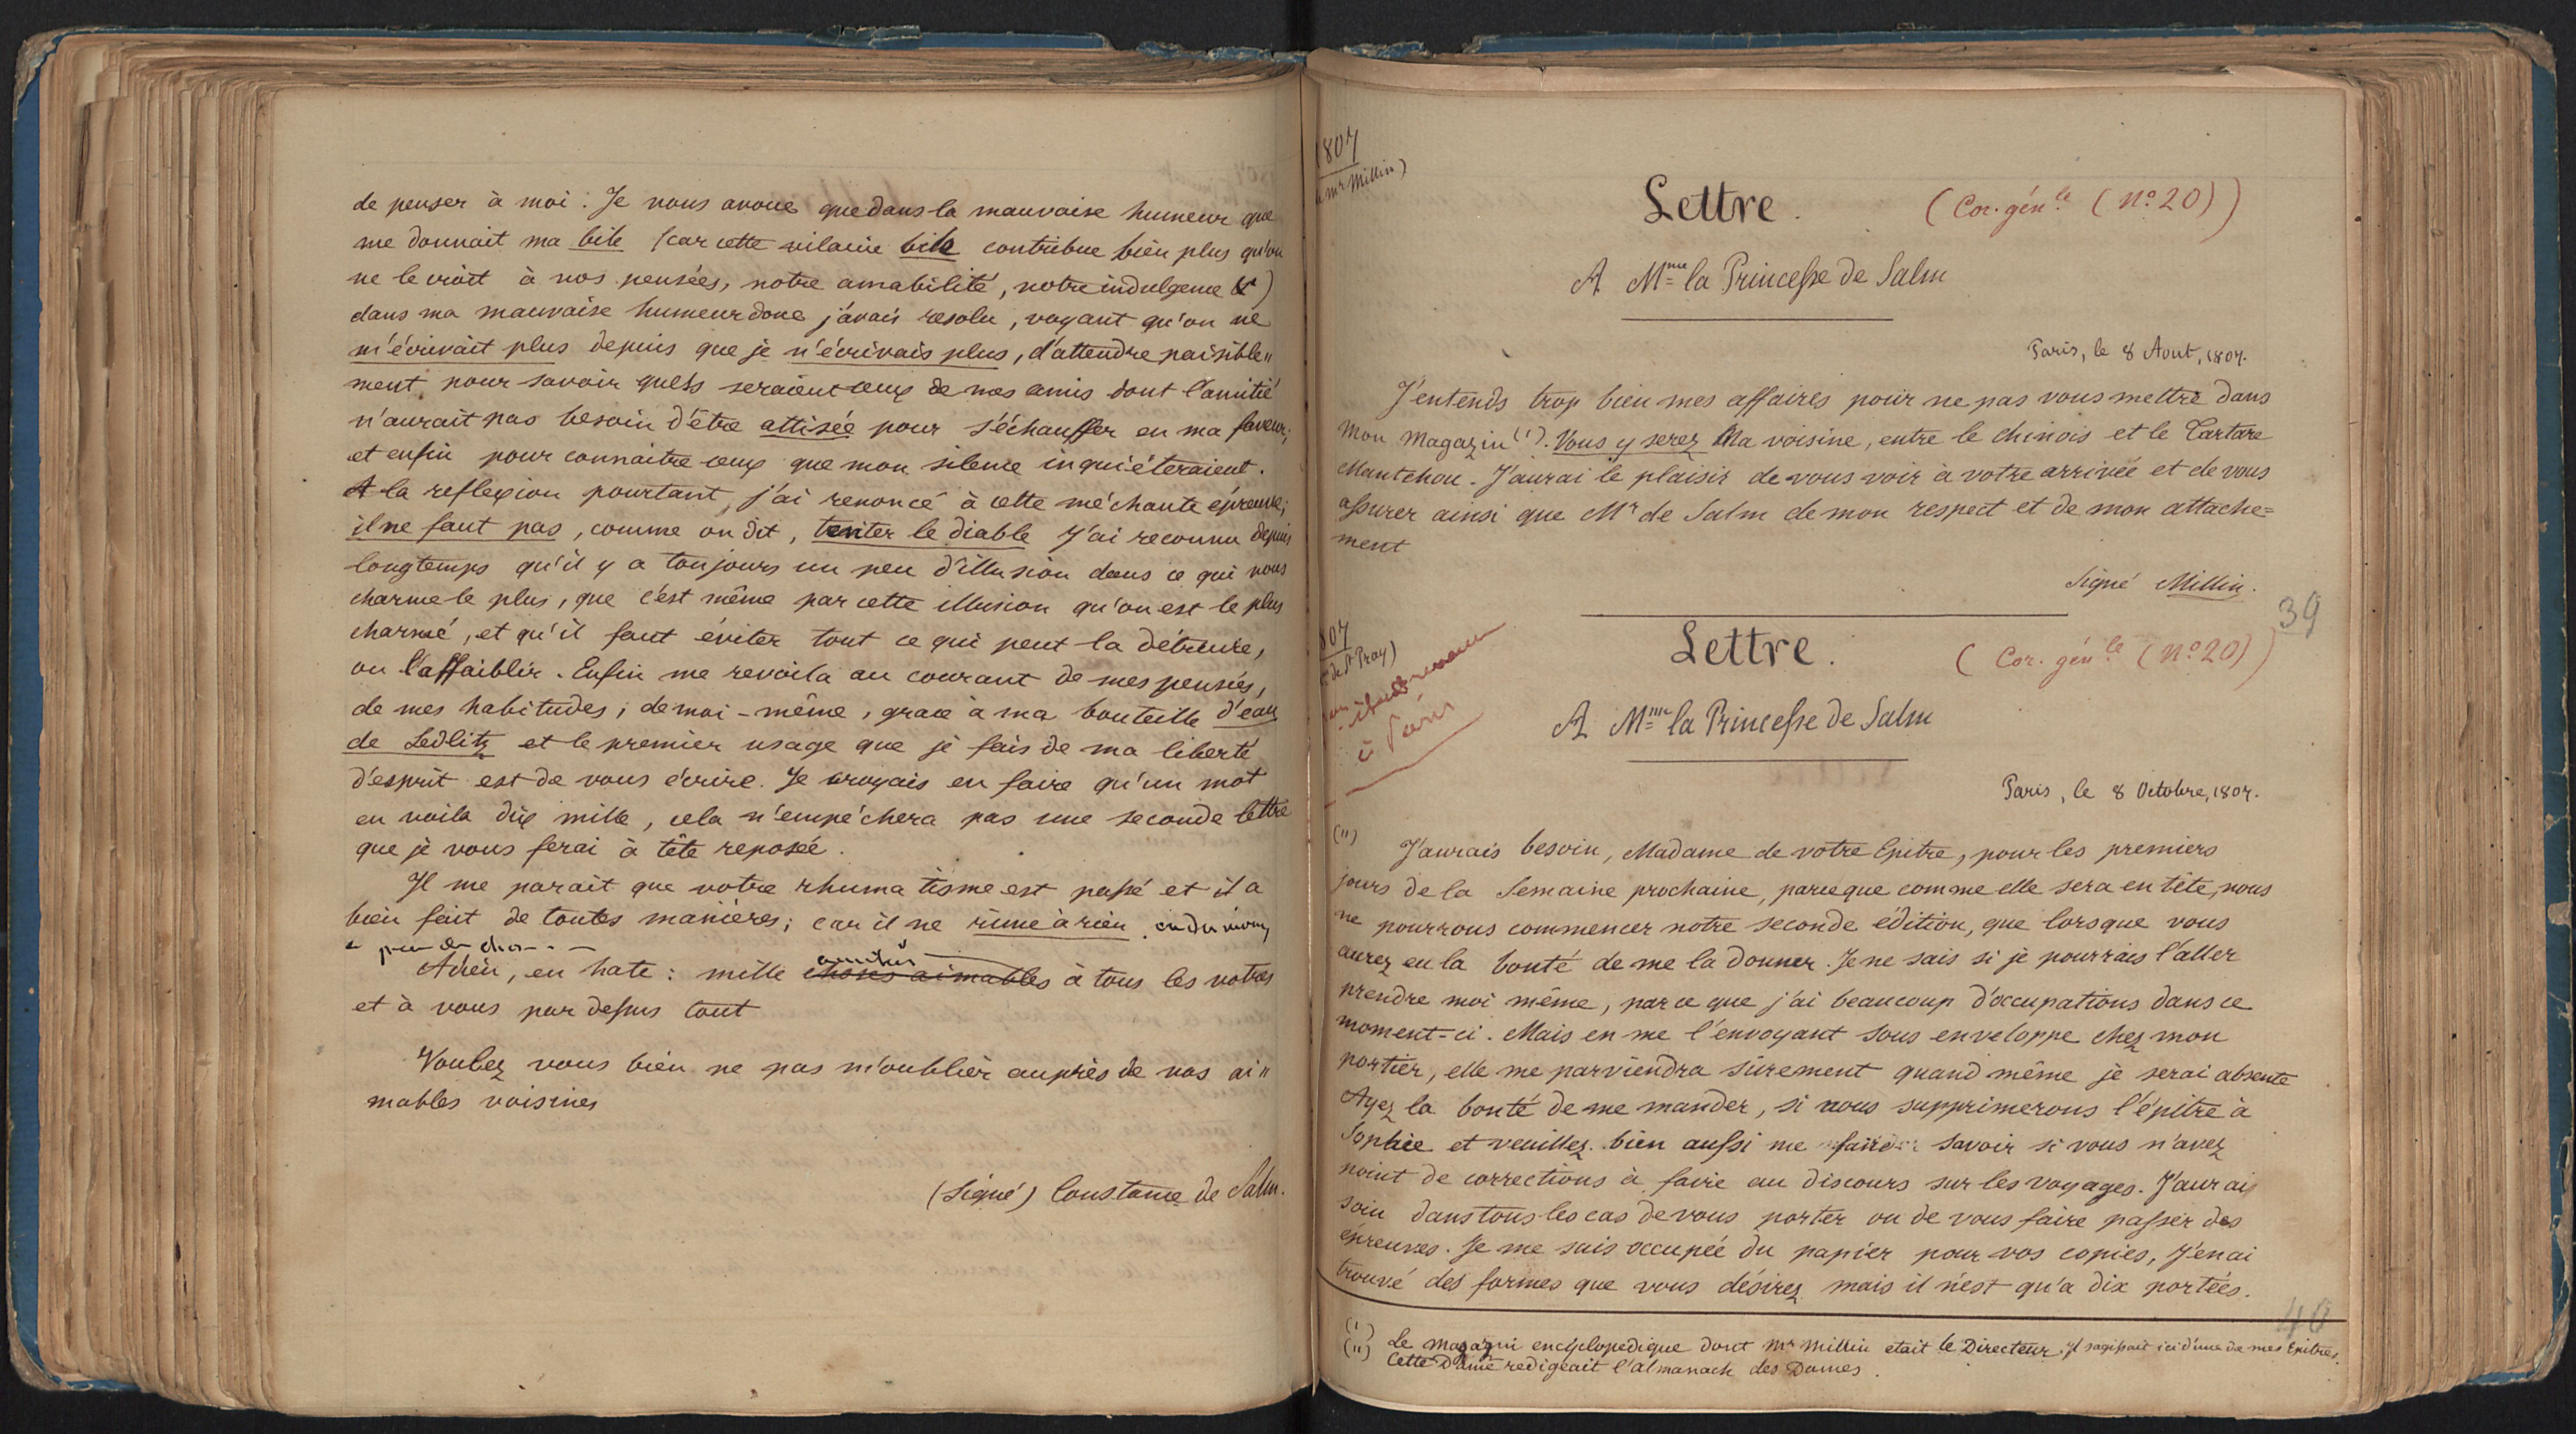 de penser à moi. Je vous avoue que dans la mauvaise humeur que
me donnait ma bile (car cette vilaine bile contribue bien plus qu'on
ne le croit à nos pensées, notre amabilité, notre indulgence &)
dans ma mauvaise humeur donc j'avais resolu, voyant qu'on ne
m'écrivait plus depuis que je n'écrivais plus, d'attendre paisible"
ment pour savoir quels seraient ceux de mes amis dont l'amitié
n'aurait pas besoin d'être attisée pour s'échauffer en ma faveur;
et enfin pour connaitre ceux que mon silence inquiéteraient.
A la reflexion pourtant, j'ai renoncé à cette méchante épreuve;
il ne faut pas, comme on dit, tenter le diable J'ai reconnu depuis
longtemps qu'il y a toujours un peu d'illusion dans ce qui nous
charme le plus, que c'est même par cette illusion qu'on est le plus
charmé, et qu'il faut éviter tout ce qui peut la détruire,
ou l'affaiblir. Enfin me revoila au courant de mes pensées,
de mes habitudes, de moi-même, grace à ma bouteille d'eau
de Sedlitz et le premier usage que je fais de ma liberté
d'esprit est de vous écrire. Je croyais en faire qu'un mot
en voila dix mille, cela n'empéchera pas une seconde lettre
que je vous ferai à tête reposée.
Il me parait que votre rhumatisme est passé et il a
bien fait de toutes manières; car il ne rime à rien. ou du moins
a peu de chos
amitiés
Adieu, en hate: mille choses aimables à tous les votres
et à vous par dessus tout
Voulez vous bien ne pas m'oublier auprès de vos ai"
mables voisines
(Signé) Constance de Salm.
1807
mr Millin)
Lettre. (Cor. génle (No 20))
A Mme la Princesse de Salm
Paris, le 8 Aout, 1807.
J'entends trop bien mes affaires pour ne pas vous mettre dans
mon magazin (1). Vous y serez Ma voisine, entre le chinois et le Tartare
Mantchou. J'aurai le plaisir de vous voir à votre arrivée et de vous
assurer ainsi que Mr de Salm de mon respect et de mon attache=
ment
Signé Millin.
39
807
de St Pray)
Lettre. (Cor. génle (No 20))
à Paris
A Mme la Princesse de Salm
Paris, le 8 Octobre, 1807.
(11) J'aurais besoin, Madame de votre Epitre, pour les premiers
jours de la Semaine prochaine, parceque comme elle sera en tête, nous
ne pourrons commencer notre seconde édition, que lorsque vous
aurez eu la bonté de me la donner. Je ne sais si je pourrais l'aller
prendre moi même, parce que j'ai beaucoup d'occupations dans ce
moment-ci. Mais en me l'envoyant sous enveloppe chez mon
portier, elle me parviendra sûrement quand même je serai absente
Ayez la bonté de me mander, si nous supprimerons l'épitre à
Sophie et veuillez bien aussi me faire savoir si vous n'avez
point de corrections à faire au discours sur les voyages. J'aurais
soin dans tous les cas de vous porter ou de vous faire passer des
épreuves. Je me suis occupée du papier pour vos copies, J'en ai
trouvé des formes que vous désirez mais il n'est qu'a dix portées.
40
(1) Le magazin encyclopedique dont Mr Millin etait le Directeur, il s'agissait ici d'une de mes Epitres.
(11) Cette Dame redigeait l'almanach des Dames.